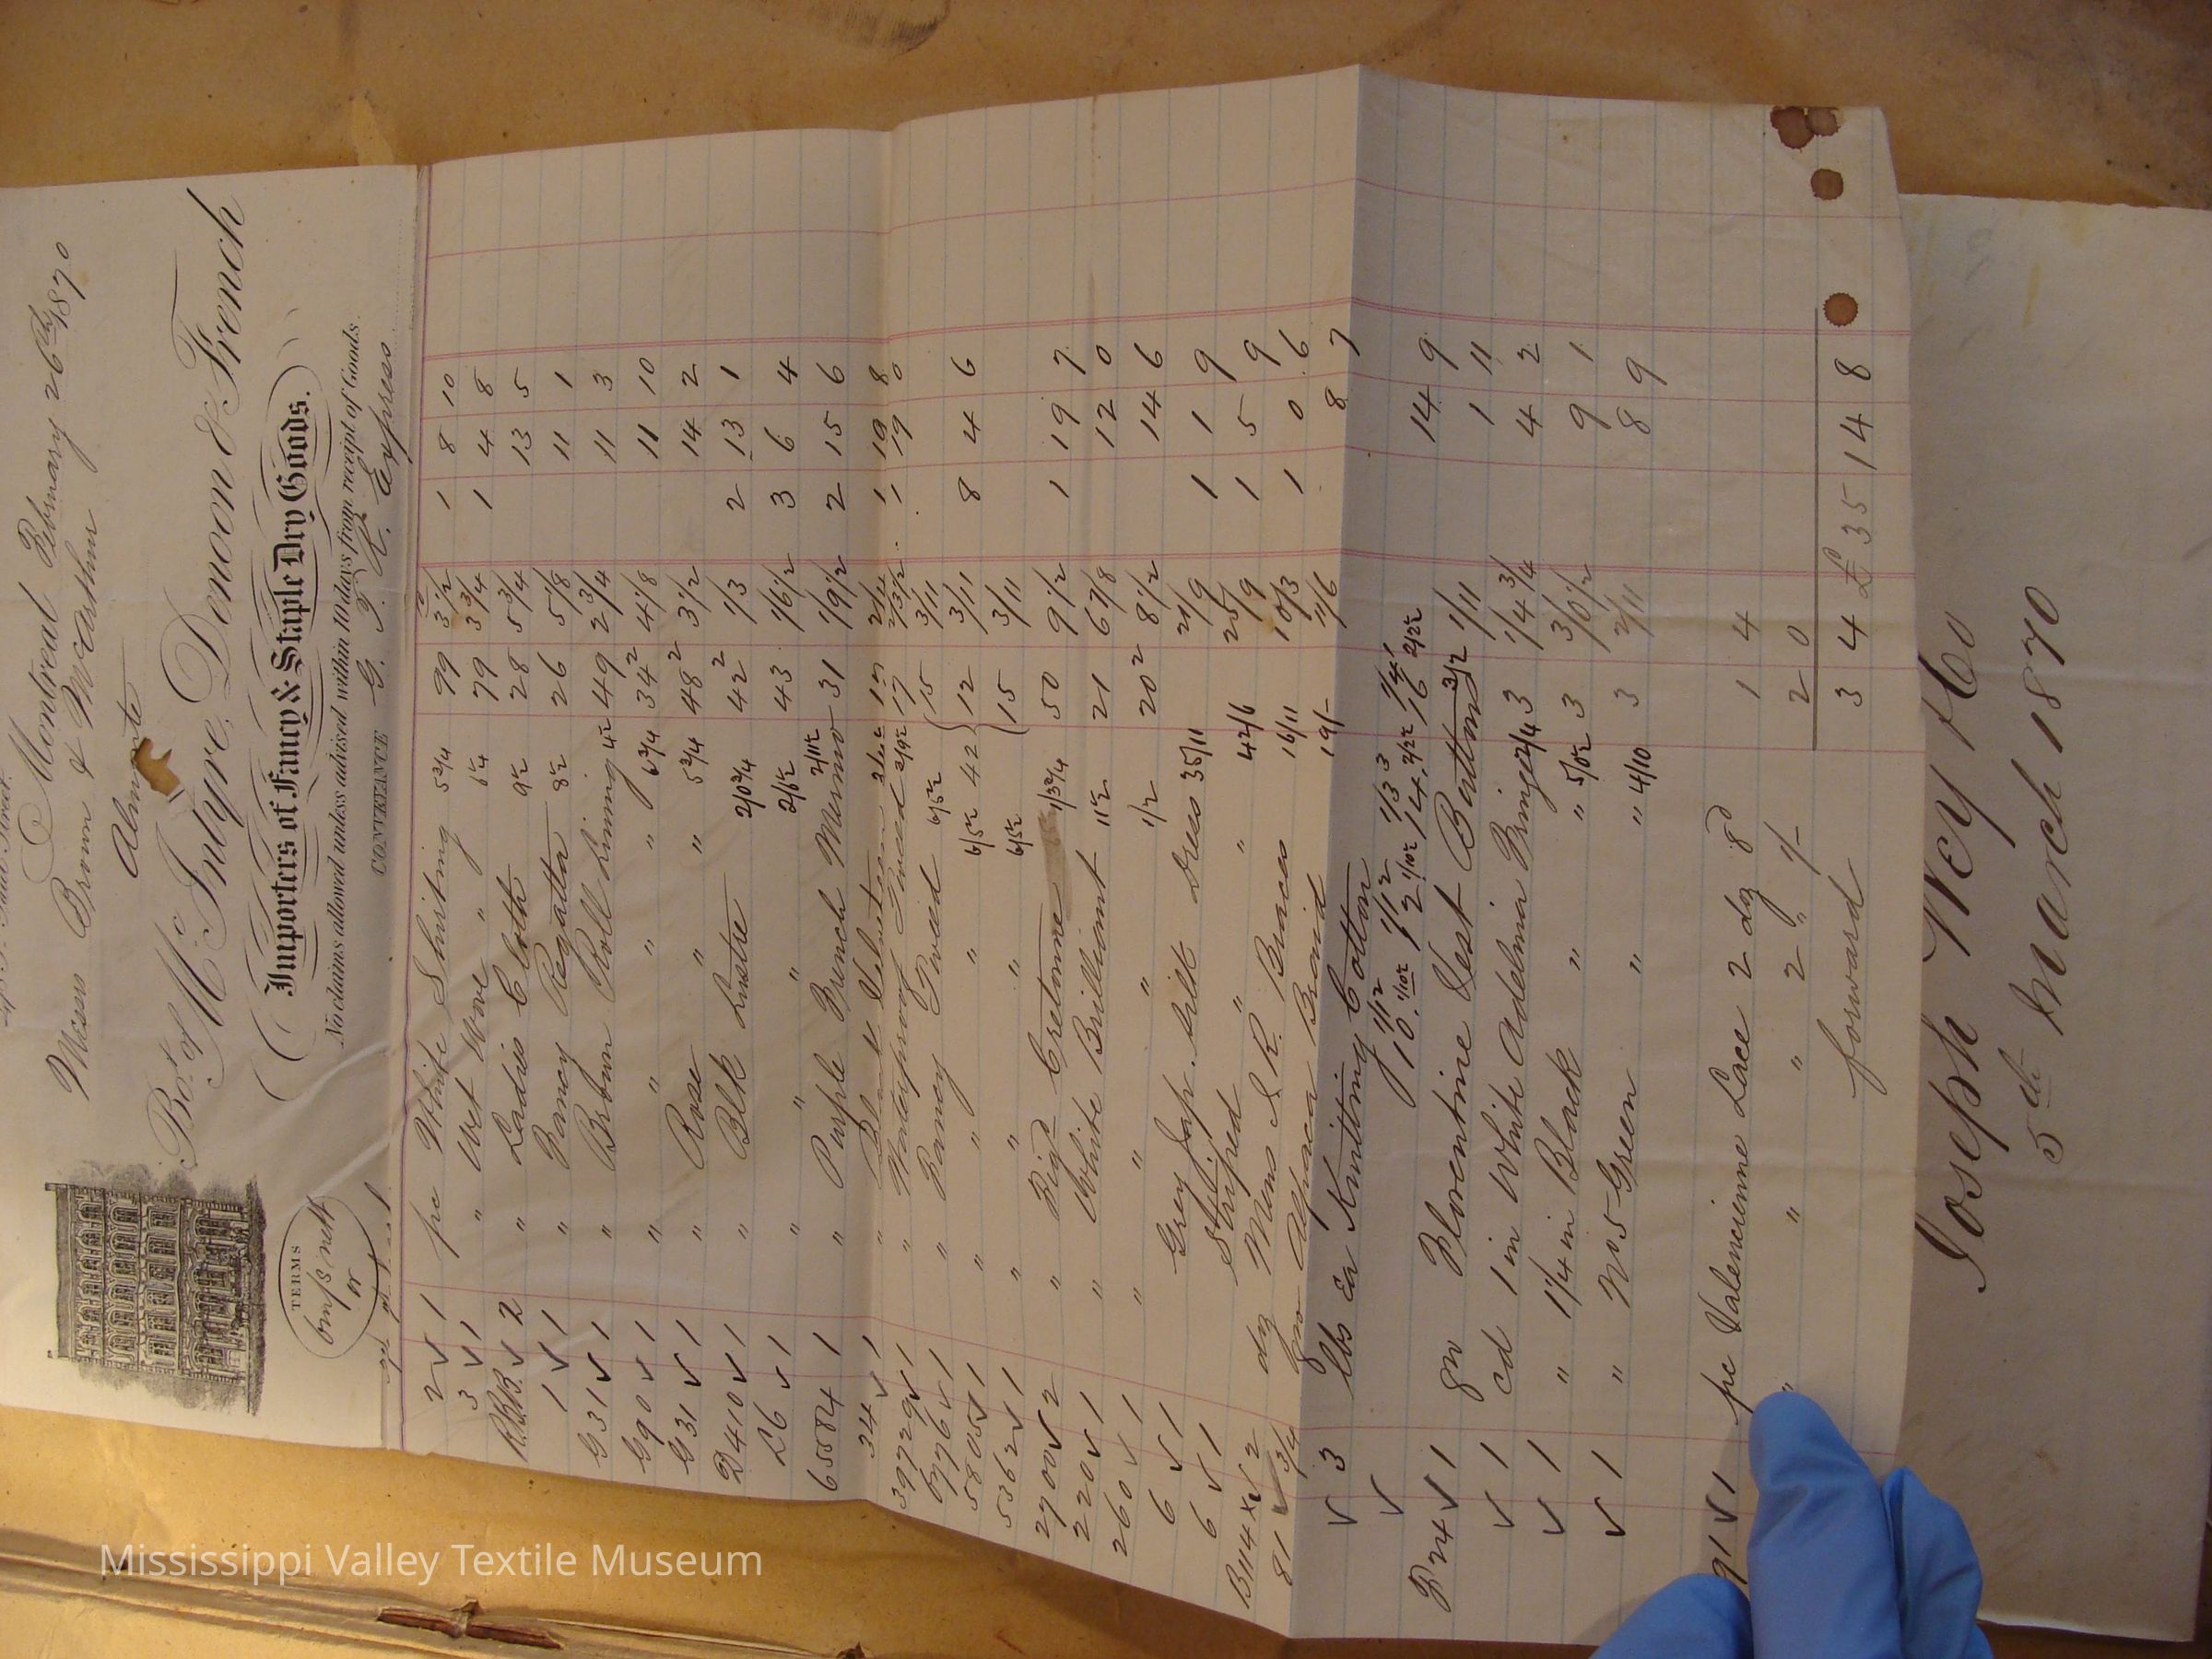 Montreal February 26th 1870
Messrs Brown & McArthur
Almonte
Bot of McIntyre, Denoon & French
Importers of Fancy & Staple Dry Goods.
No claims allowed unless advised within 10 days from receipt of Goods.
TERMS
6 mos nett
or
CONVEYANCE G. T. R. Express
2 √ 1 pc White Shirting 5 3/4 99 3 1/2 1 8 10
3 √ 1 " Wet Wove " 79 3 3/4 1 4 8
√ 2 " Ladies Cloth 28 5 3/4 13 5
1 √ 1 " Fancy Regatta 26 5 1/8 11 1
G31 √ 1 " Brown Roll Lining 49 2 3/4 11 3
G90 √ 1 " " " " 6 3/4 34 2 4 1/8 11 10
G31 √ 1 " Rose " " 5 3/4 48 2 3 1/2 14 2
D410 √ 1 " Blk Lustre 2/0 3/4 42 2 1/3 2 13 1
L6 √ 1 " " " 43 1/6 1/2 3 6 4
65584 1 " Purple French Merino 31 1/9 1/2 2 15 6
34 √ 1 " Black Velveteen 1 19 8
39729 √ 1 " Waterproof Tweed 17 2/3 1/2 1 19 0
6776 √ 1 " Fancy Tweed 15 3/11
5805 √ 1 " " " 12 3/11 42 8 4 6
5362 √ 1 " " " 15 3/11
2700 √ 2 " Fig'd Cretonne 1/3 3/4 50 9 1/2 1 19 7
220 √ 1 " White Brilliant 21 6 7/8 12 0
260 √ 1 " " " 1/2 20 2 8 1/2 14 6
6 √ 1 Grey Jap. Silk Dress 35/11 21/9 1 1 9
6 √ 1 Striped " " 42/6 25/9 1 5 9
B114 x √ 2 dz Mens I. R. Braces 16/11 10/3 1 0 6
81 √ 3/4 gro Alpaca Braid 19/- 11/6 8 7
√ 3 lbs ea Knitting Cotton
√ 10. 12. 14. 16
P24 √ 1 gro Florentine Vest Buttons 3/2 1/11 1 11
√ 1 cd 1 in White Adelina Fringe 2/4 3 1/4 3/4 4 2
√ 1 " 1 1/4 in Black " " 3 3/0 1/2 9 1
√ 1 " No 5 Green " " 4/10 3 2/11 8 9
91 √ 1 pc Valencienne Lace 2 dz 8d 1 4
" " " 2 " 1/- 2 0
3 4
forward £ 35 14 8
Joseph Wey & Co
5th March 1870
Mississippi Valley Textile Museum